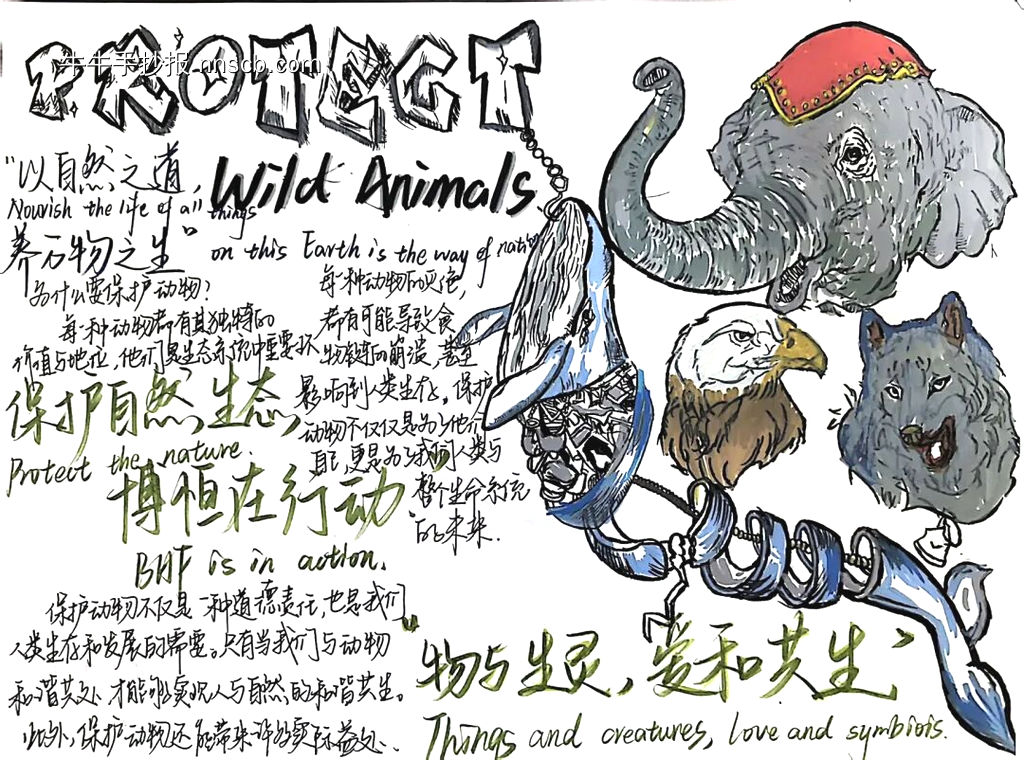 PROTECT
牛牛手抄报 nnscb.com
Wild Animals
"以自然之道,
Nourish the life of all things
养万物之生"
on this Earth is the way of nature
为什么要保护动物?
每一种动物都有其独特的
价值与地位,他们是生态系统中重要环
每一种动物的灭绝,
都有可能导致食
物链的崩溃,甚至
影响到人类生存。保护
动物不仅仅是为了他们
自己,更是为了我们人类与
整个生命系统
的未来.
保护自然生态,
Protect the nature.
博恒在行动
BHF is in action.
保护动物不仅是一种道德责任,也是我们
人类生存和发展的需要。只有当我们与动物
和谐共处 才能够实现人与自然的和谐共生。
此外,保护动物还能带来许多实际益处、
"物与生灵,爱和共生"
Things and creatures, love and symbiois.